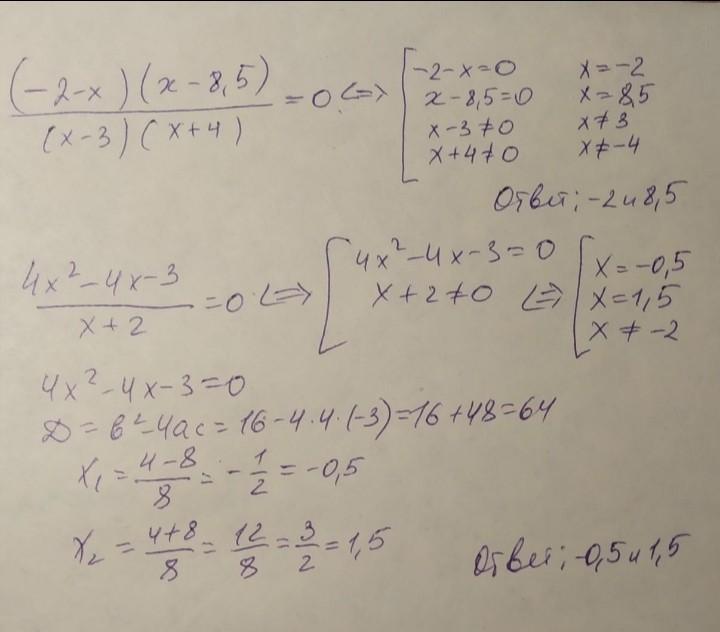 (-2-x)(x-8,5)/(x-3)(x+4) = 0 <=> [ -2-x=0 x=-2
x-8,5=0 x=8,5
x-3≠0 x≠3
x+4≠0 x≠-4
Ответ: -2 и 8,5
4x²-4x-3/x+2 = 0 <=> [ 4x²-4x-3=0 <=> [ x=-0,5
x+2≠0 x=1,5
x≠-2
4x²-4x-3=0
D=b²-4ac=16-4·4·(-3)=16+48=64
x₁=4-8/8=-1/2=-0,5
x₂=4+8/8=12/8=3/2=1,5
Ответ: -0,5 и 1,5